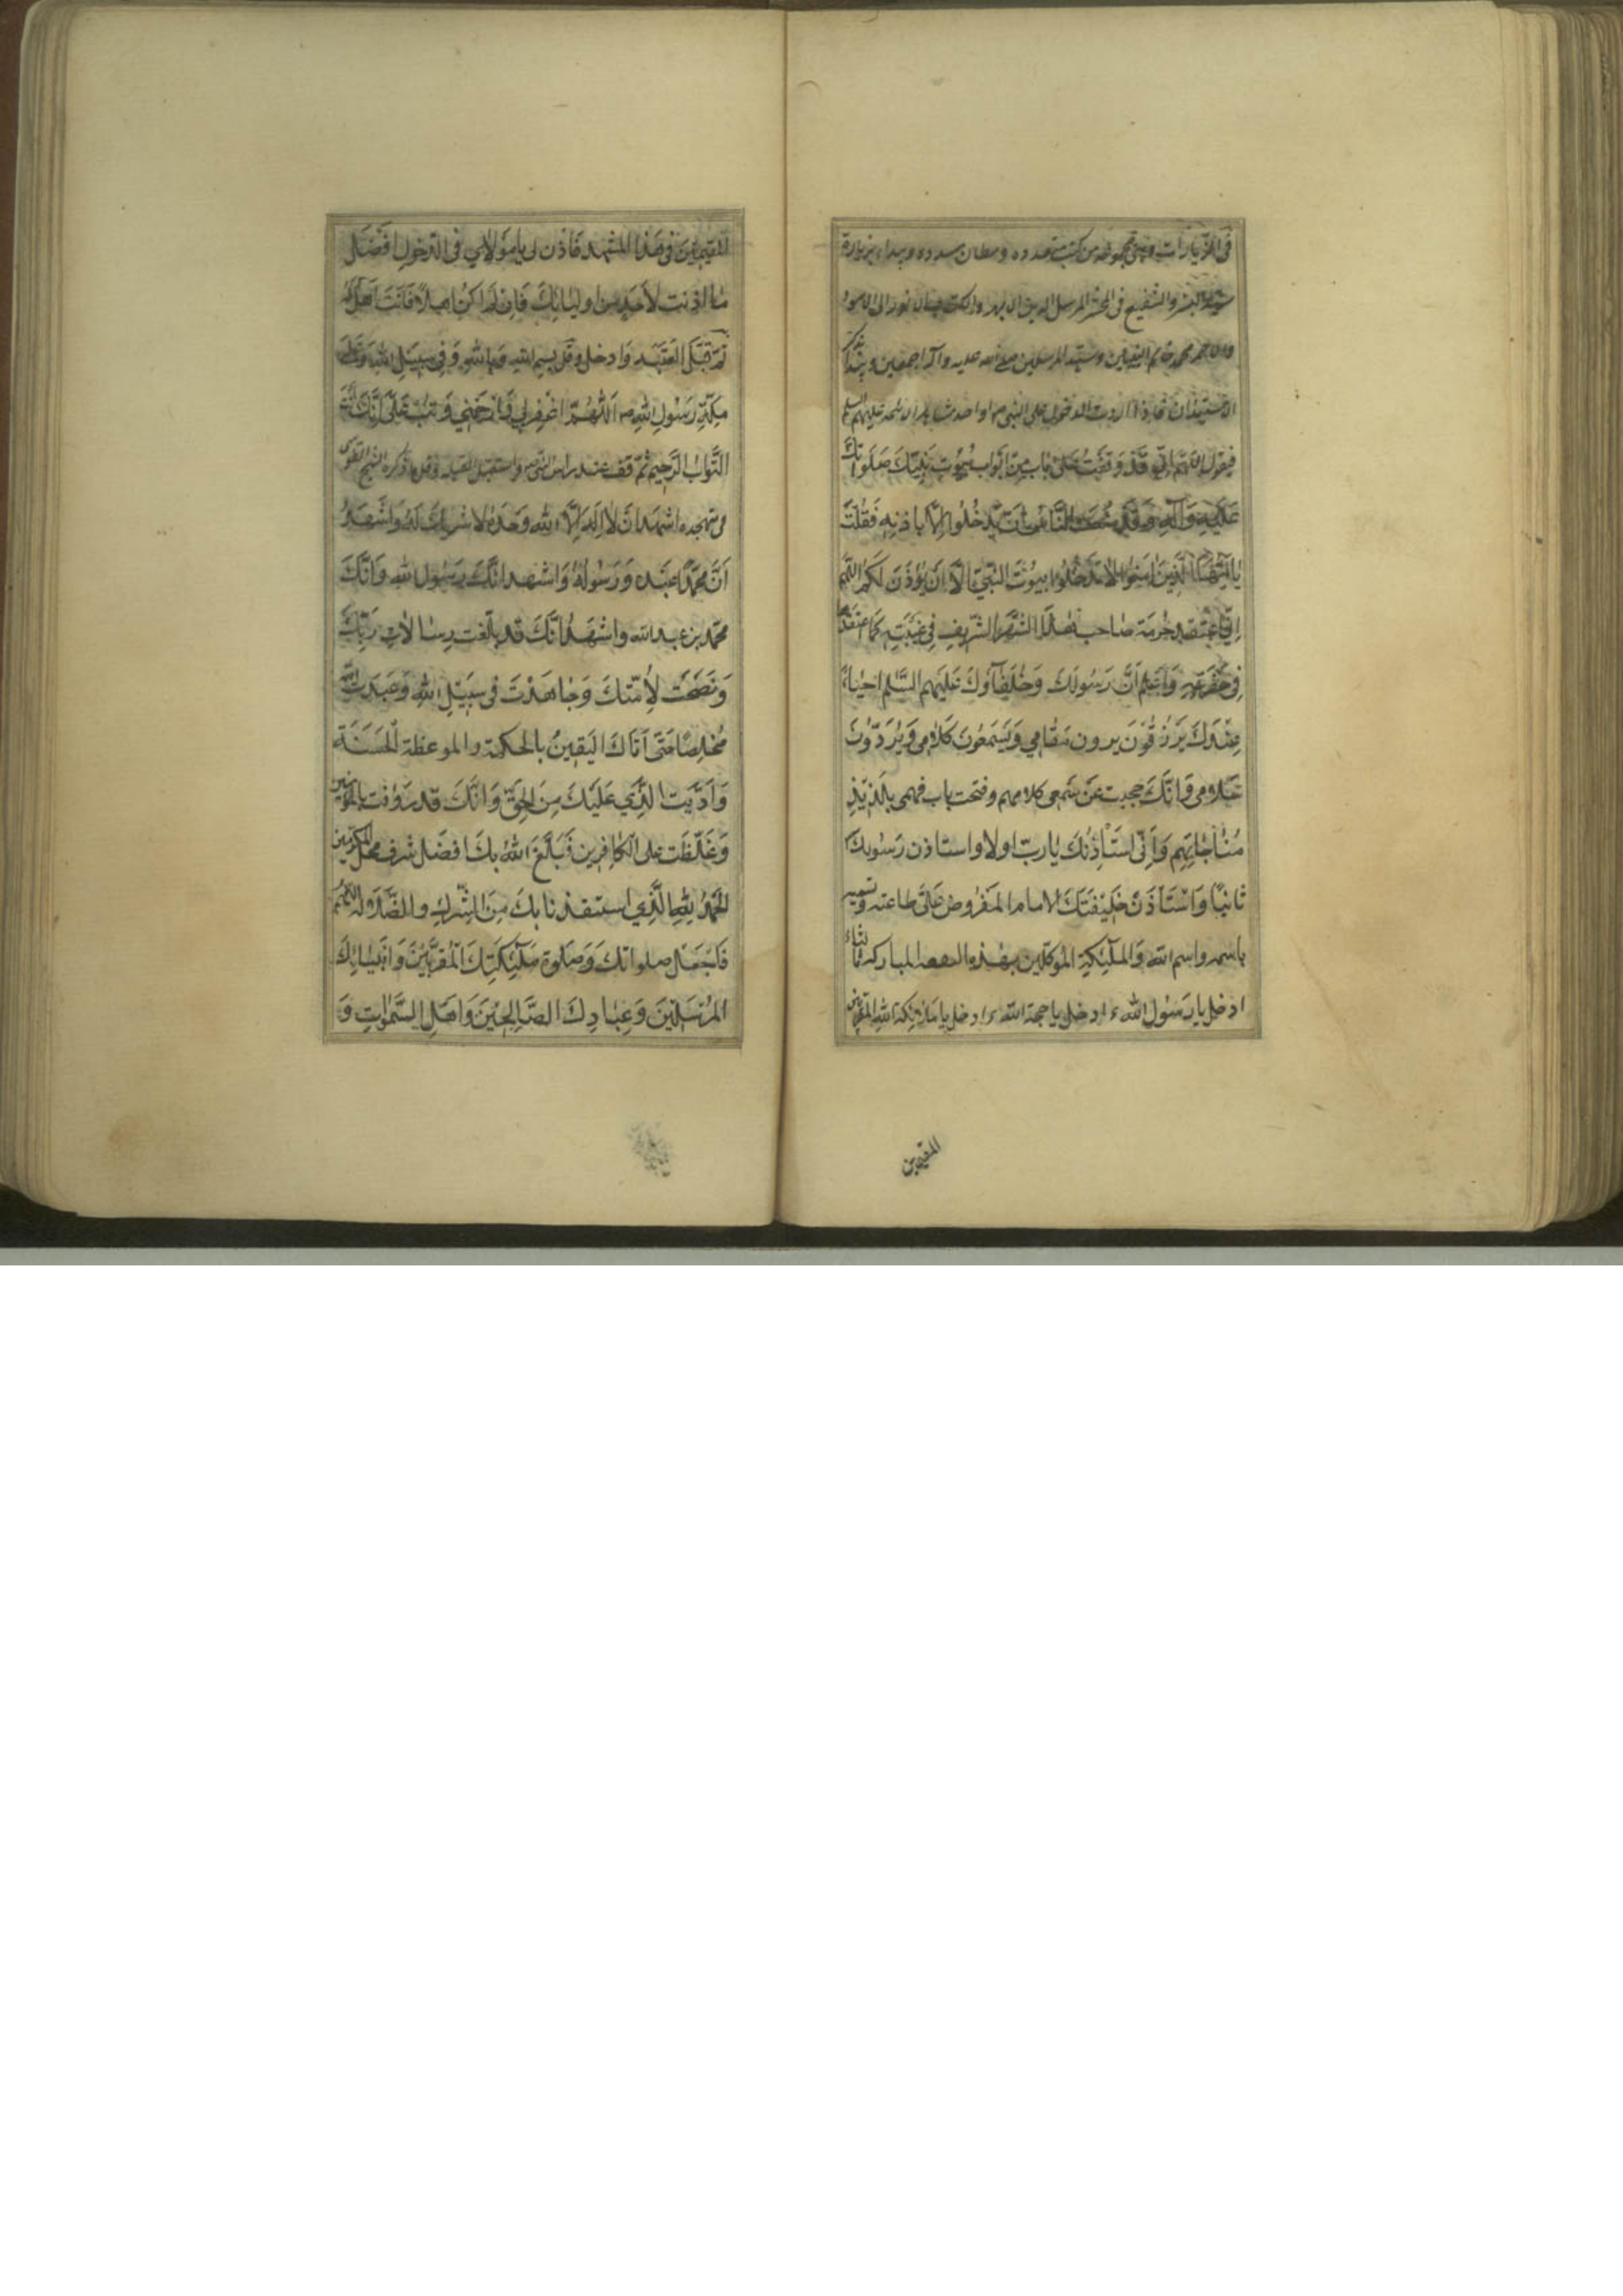 في الزيارات وهي مجموعه من كتب متعدده و مظان مسدوده ويبداء بزيارة
سيد البشر والشفيع في المحشر المرسل الى
محمد خاتم النبيين وسيد المرسلين صلى الله عليه وآله اجمعين ونذكر
الاستيذان فاذا اردت الدخول على النبي ص او احد مشاهد الائمه عليهم السلم
فيقول اللهم اني قَدْ وَقَفْتُ عَلىٰ بَابٍ مِنْ اَبْوَابِ بُيُوتِ نَبِيِّكَ صَلَوٰاتُكَ
عَلَيْهِ وَآلِهِ وَقَدْ مَنَعْتَ النَّاسَ اَنْ يَدْخُلُوا اِلَّا بِاِذْنِهِ فَقُلْتَ
يٰا اَيُّهَا الَّذِينَ اٰمَنُوا لاٰ تَدْخُلُوا بُيُوتَ النَّبِيِّ اِلَّا اَنْ يُؤْذَنَ لَكُمْ اللّٰهم
اِنّي اَعْتَقِدُ حُرْمَةَ صٰاحِبِ هٰذَا المَشْهَدِ الشَّرِيفِ فِي غَيْبَتِهِ كَمٰا اعْتَقِدُهٰا
فِي حَضْرَتِهِ وَاَعْلَمُ اَنَّ رَسُولَكَ وَخُلَفٰآؤكَ عَلَيْهِمُ السَّلٰم احْيٰاءٌ
عِنْدَكَ يُرْزَقُونَ يرون مَقٰامِي وَيَسْمَعُونَ كَلاٰمِي وَيَرُدّوُنَ
سَلاٰمِي وَاَنَّكَ حجبت عَنْ سَمعي كلامهم وفتحت باب فهمي بِلَذِيذِ
مُنٰاجٰاتِهِمْ وَاَنّي اسْتَأْذِنُكَ يٰا ربّ اولا واستاذن رَسُولكَ
ثٰانيًا وَاَسْتَأْذِنُ خَلِيْفَتَكَ الامام المَفْرُوضَ عَلَيَّ طاعته وتسميه
باسمه واسم ابيه وَالملٰٓئِكَةِ المُوَكَّلين بهٰذه البقعه المباركه ثالثاً
ادخل يا رَسُول اللهِ ء ادخل يا حجة الله ء ادخل يا ملٰٓئكة اللهِ المقرّبين
المقيمين
المُقيمينَ في هَذا المشهد فَأذَن لي يا مَوْلاٰي في الدّخولِ افْضَلَ
مٰا اذنت لأحَدٍ من اوليٰائِكَ فَاِنْ لَمْ اكُنْ اهلاً فَاَنْتَ اَهْلٌ لَهُ
ثمّ قَبّل العَتَبَه وَادخل وقُل بسم الله وَبالله وَفي سَبيلِ اللهِ وَعَلى
مِلّةِ رَسُولِ اللهِ ص اَللّهُمَّ اغْفِرلي وَارْحَمْنِي وَتُبْ عَلَيَّ اِنَّكَ اَنْتَ
التَّوّابُ الرَّحيم ثُمّ قف عند راس النبي ص واستقبل القبله وقل ما ذكره الشيخ الطوسى
في تهجده اشهد ان لا اِلٰهَ اِلَّا الله وَحْدَهُ لا شريكَ لَهُ وَاَشْهَدُ
اَنَّ مُحمّدًا عَبْدهُ وَرَسُولُهُ وَاشهد انّكَ رَسُول اللهِ وَاَنَّكَ
محمّد بن عبد الله واشْهَدُ اَنَّكَ قد بلّغت رِسٰالاٰتِ رَبِّكَ
وَنَصَحْتَ لأُمّتكَ وَجٰاهَدْتَ في سَبِيلِ اللهِ وَعَبَدْتَ اللهَ
مُخْلِصًا حَتّى اَتٰاكَ اليَقينُ بالحكمة والموعظة الْحَسَنَة
وَاَدَّيْتَ الَّذي عَلَيْكَ مِنَ الحَقّ وَانّكَ قد رَؤُفت بالمؤمنين
وَغَلّظت على الكٰافرين فَبَلّغَ الله بكَ افضَل شرف محلّ المكرّمين
الحَمْدُ لِلّٰهِ الَّذي استنقذنا بكَ مِنَ الشِّرْكِ والضَّلاٰلة اللهمّ
فَاجْعَل صلواتكَ وَصَلوٰة مَلٰٓئِكَتِكَ المُقَرَّبِيْنَ وَاَنبيٰائِكَ
المُرْسَلِيْنَ وَعِبٰادِكَ الصّٰالِحِيْنَ وَاَهلِ السَّمٰوٰاتِ وَ